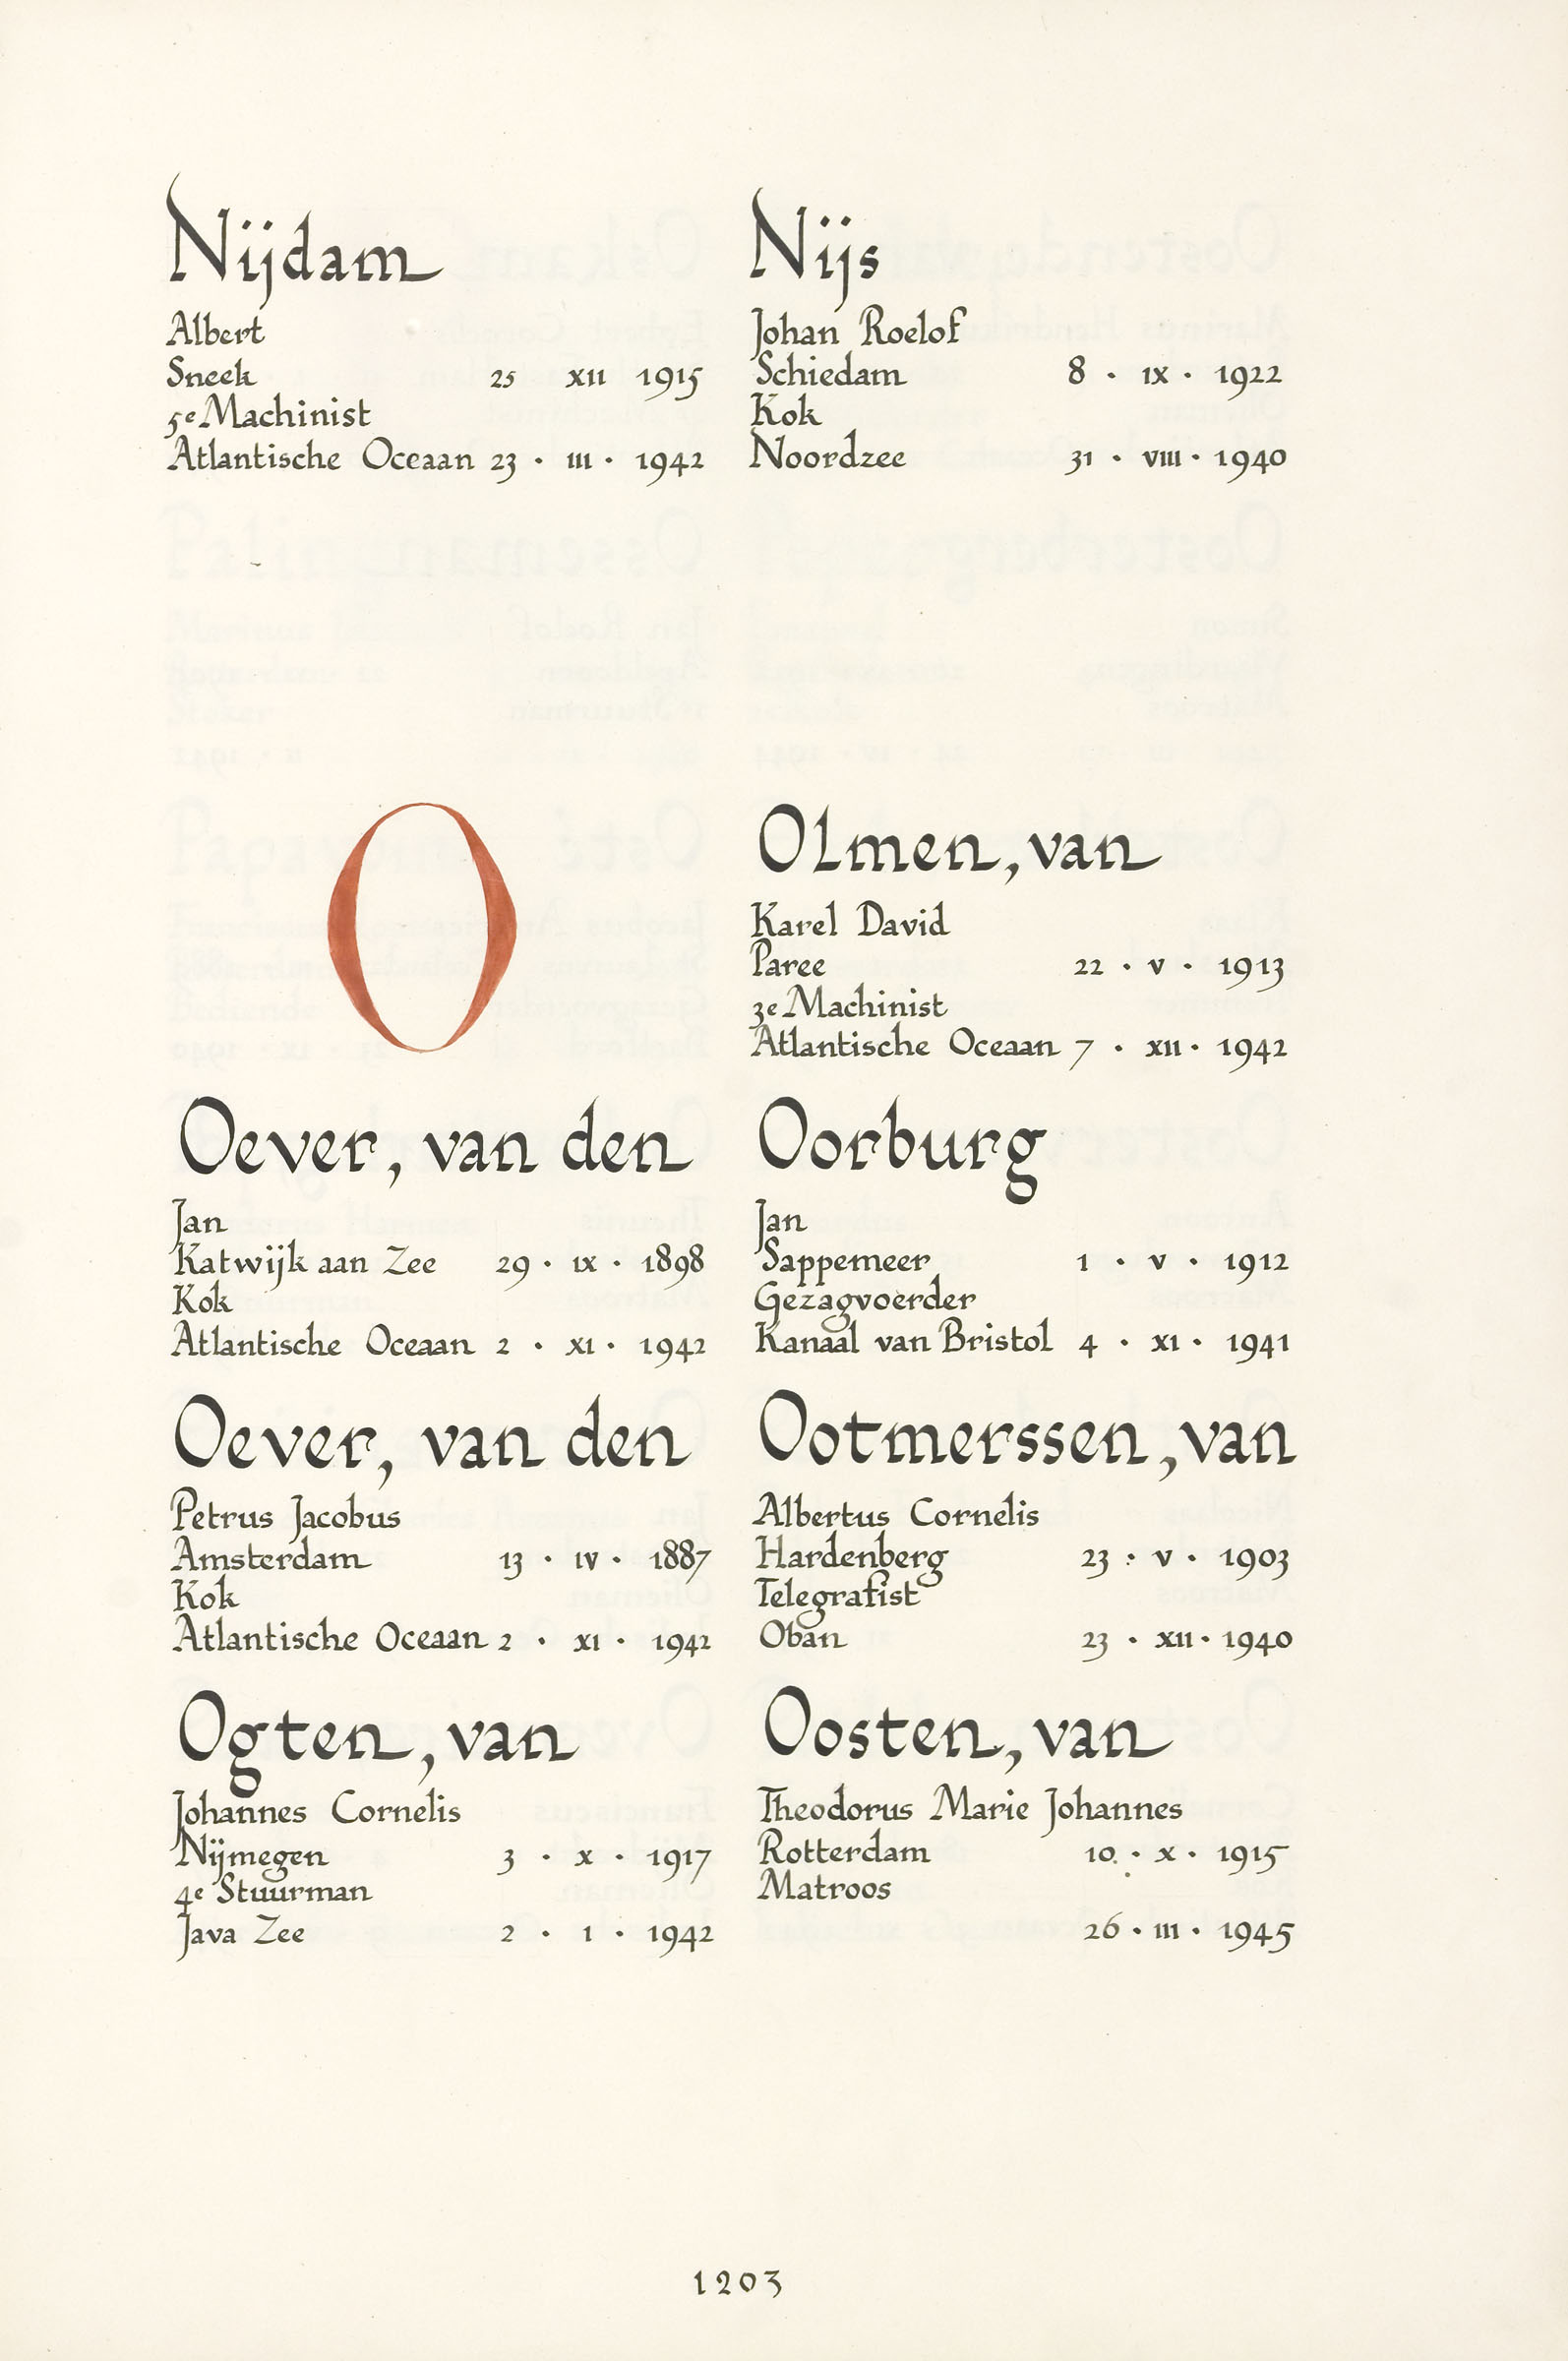 Nijdam
Albert
Sneek 25 XII 1915
5e Machinist
Atlantische Oceaan 23 · III · 1942
Nijs
Johan Roelof
Schiedam 8 · IX · 1922
Kok
Noordzee 31 · VIII · 1940
O
Oever, van den
Jan
Katwijk aan Zee 29 · IX · 1898
Kok
Atlantische Oceaan 2 · XI · 1942
Oever, van den
Petrus Jacobus
Amsterdam 13 · IV · 1887
Kok
Atlantische Oceaan 2 · XI · 1942
Ogten, van
Johannes Cornelis
Nijmegen 3 · X · 1917
4e Stuurman
Java Zee 2 · I · 1942
Olmen, van
Karel David
Paree 22 · V · 1913
3e Machinist
Atlantische Oceaan 7 · XII · 1942
Oorburg
Jan
Sappemeer 1 · V · 1912
Gezagvoerder
Kanaal van Bristol 4 · XI · 1941
Ootmerssen, van
Albertus Cornelis
Hardenberg 23 · V · 1903
Telegrafist
Oban 23 · XII · 1940
Oosten, van
Theodorus Marie Johannes
Rotterdam 10 · X · 1915
Matroos
26 · III · 1945
1203